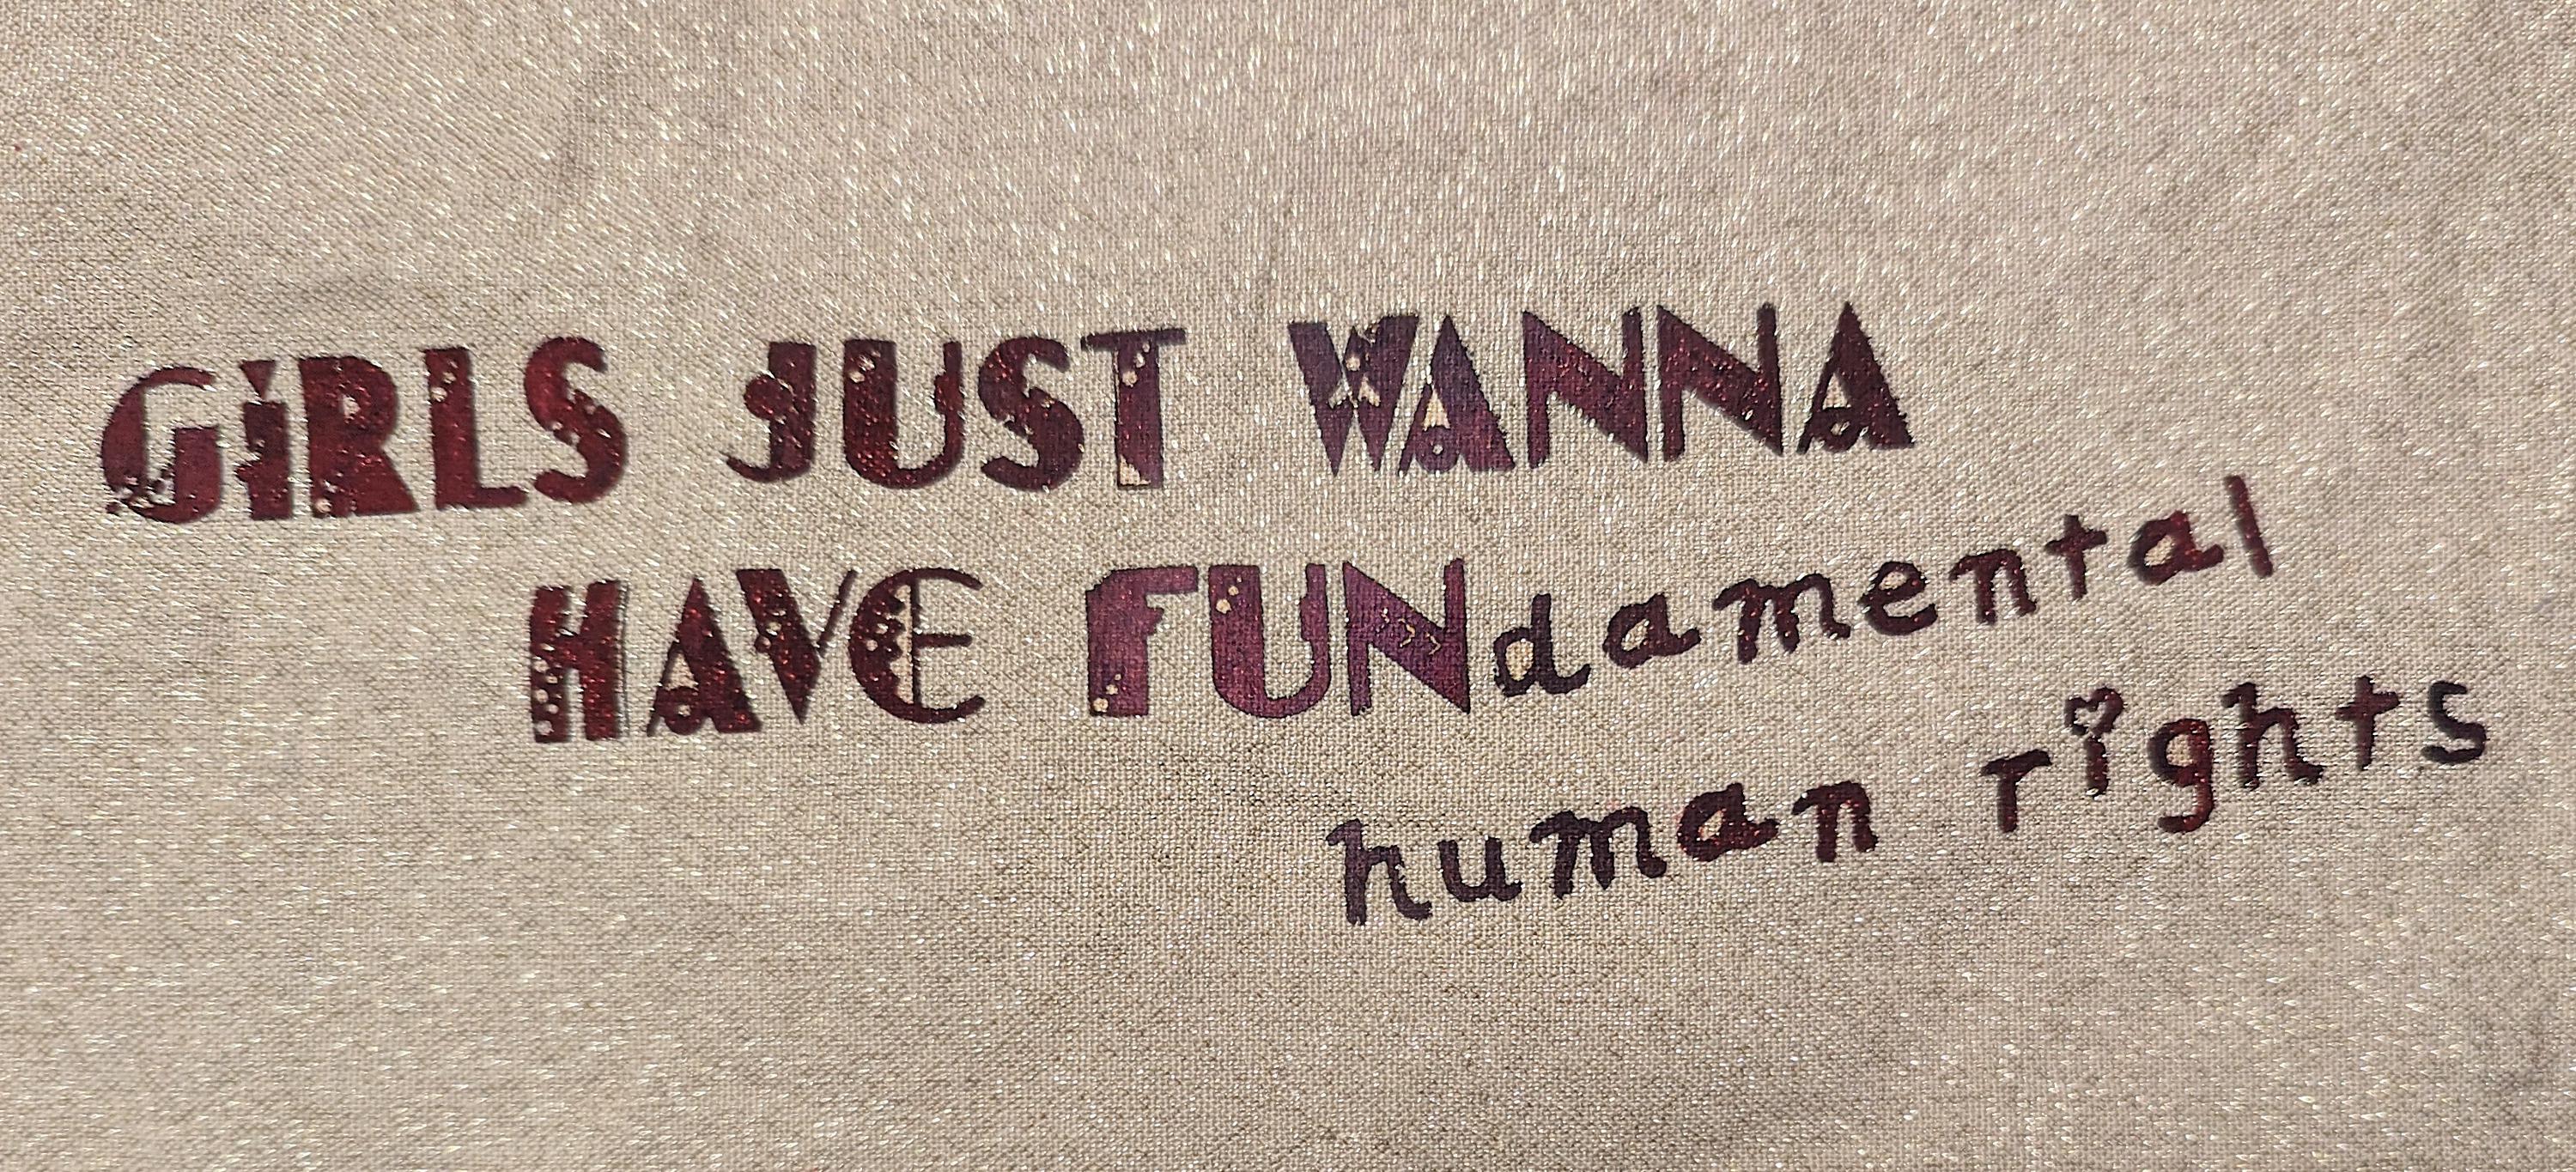 GiRLS JUST WANNA
HAVE FUNdamental
human rights